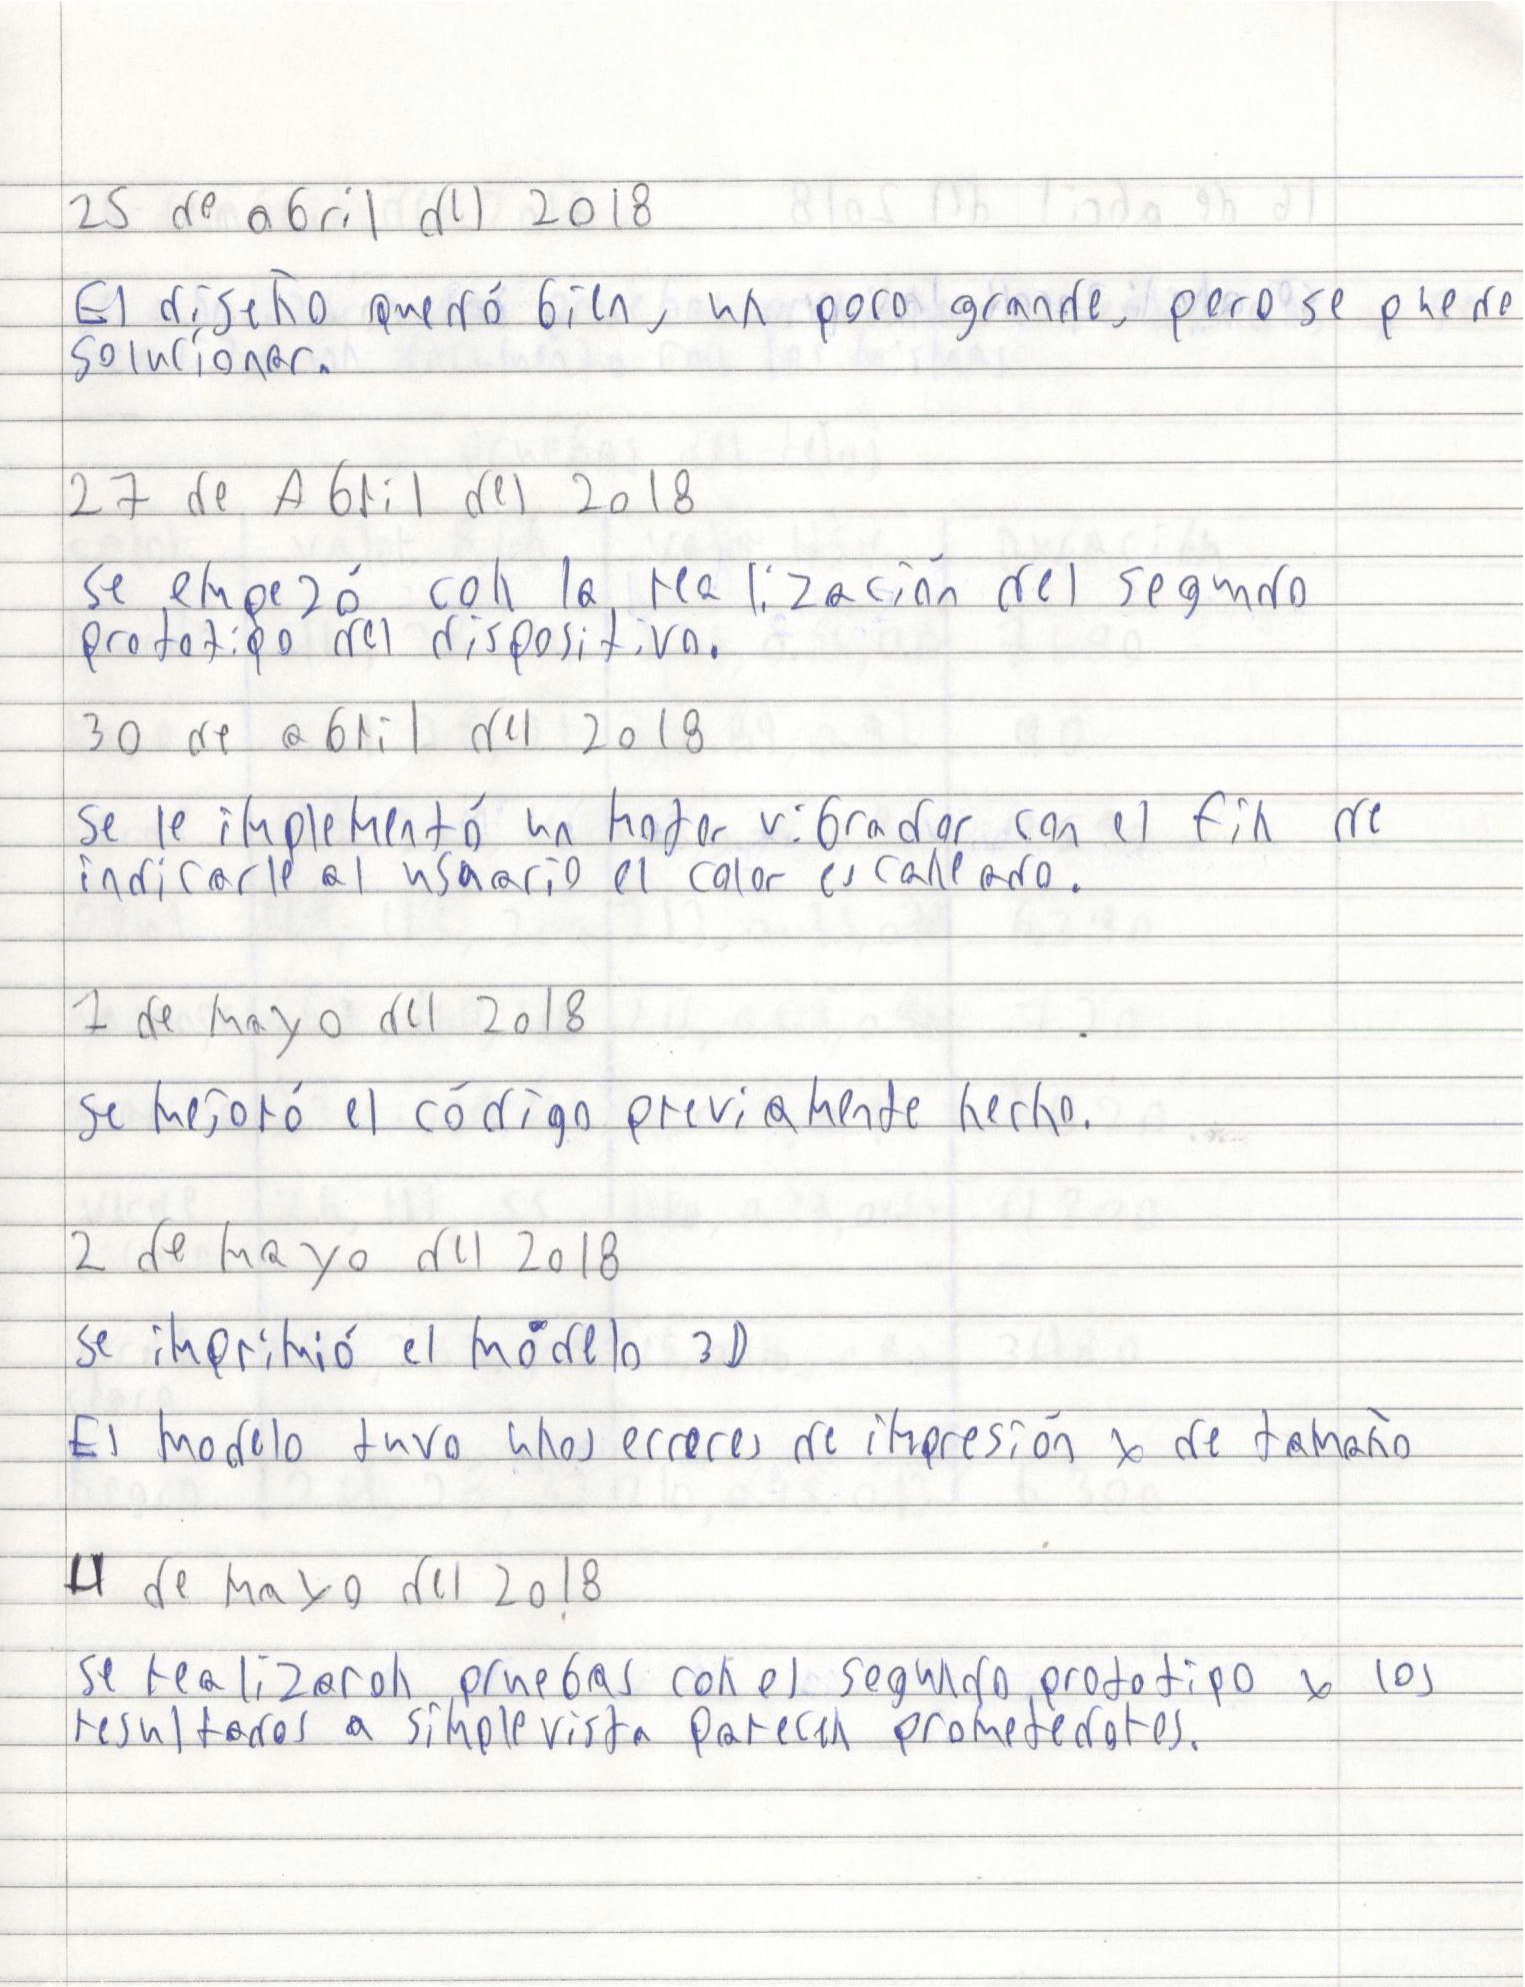 25 de abril del 2018
El diseño quedó bien, un poco grande, pero se puede
solucionar.
27 de Abril del 2018
se empezó con la realización del segundo
prototipo del dispositivo.
30 de abril del 2018
se le implementó un motor vibrador con el fin de
indicarle al usuario el color escaneado.
1 de mayo del 2018
se mejoró el código previamente hecho.
2 de mayo del 2018
se imprimió el modelo 3D
El modelo tuvo unos errores de impresión y de tamaño
4 de mayo del 2018
se realizaron pruebas con el segundo prototipo y los
resultados a simple vista parecen prometedores.